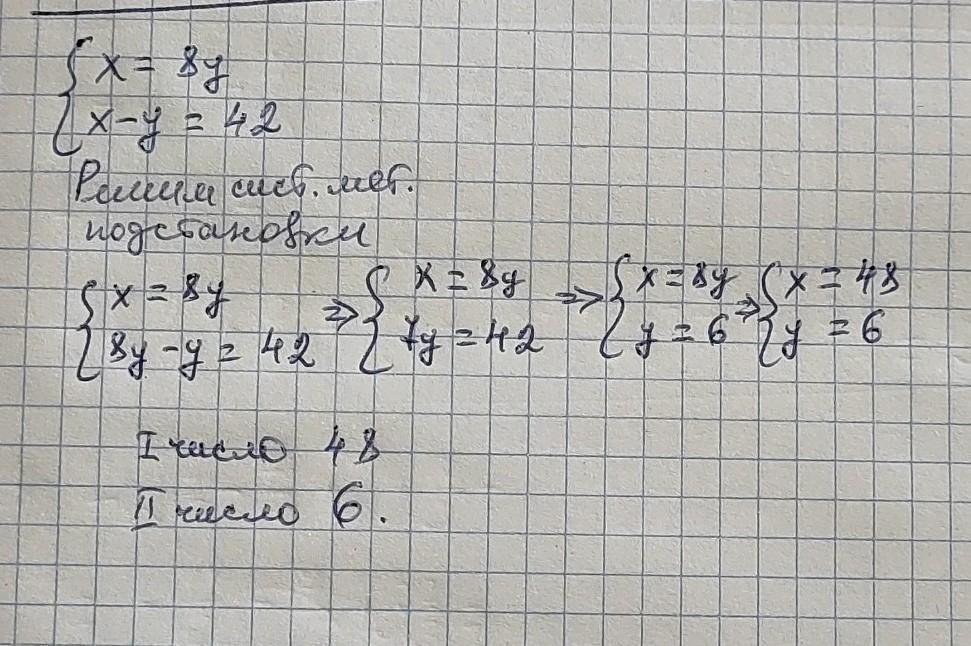 { x = 8y
x - y = 42
Решим сист. мет.
подстановки
{ x = 8y ⇒ { x = 8y ⇒ { x = 8y ⇒ { x = 48
8y - y = 42 7y = 42 y = 6 y = 6
I число 48
II число 6.